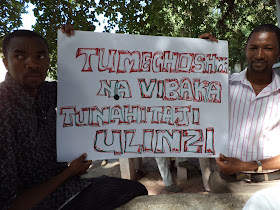 TUMECHOSHWA
NA VIBAKA
TUNAHITAJI
ULINZI